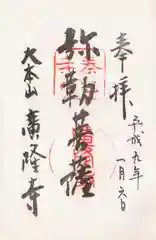 奉拝
平成九年
一月六日
弥勒菩薩
大本山
廣隆寺